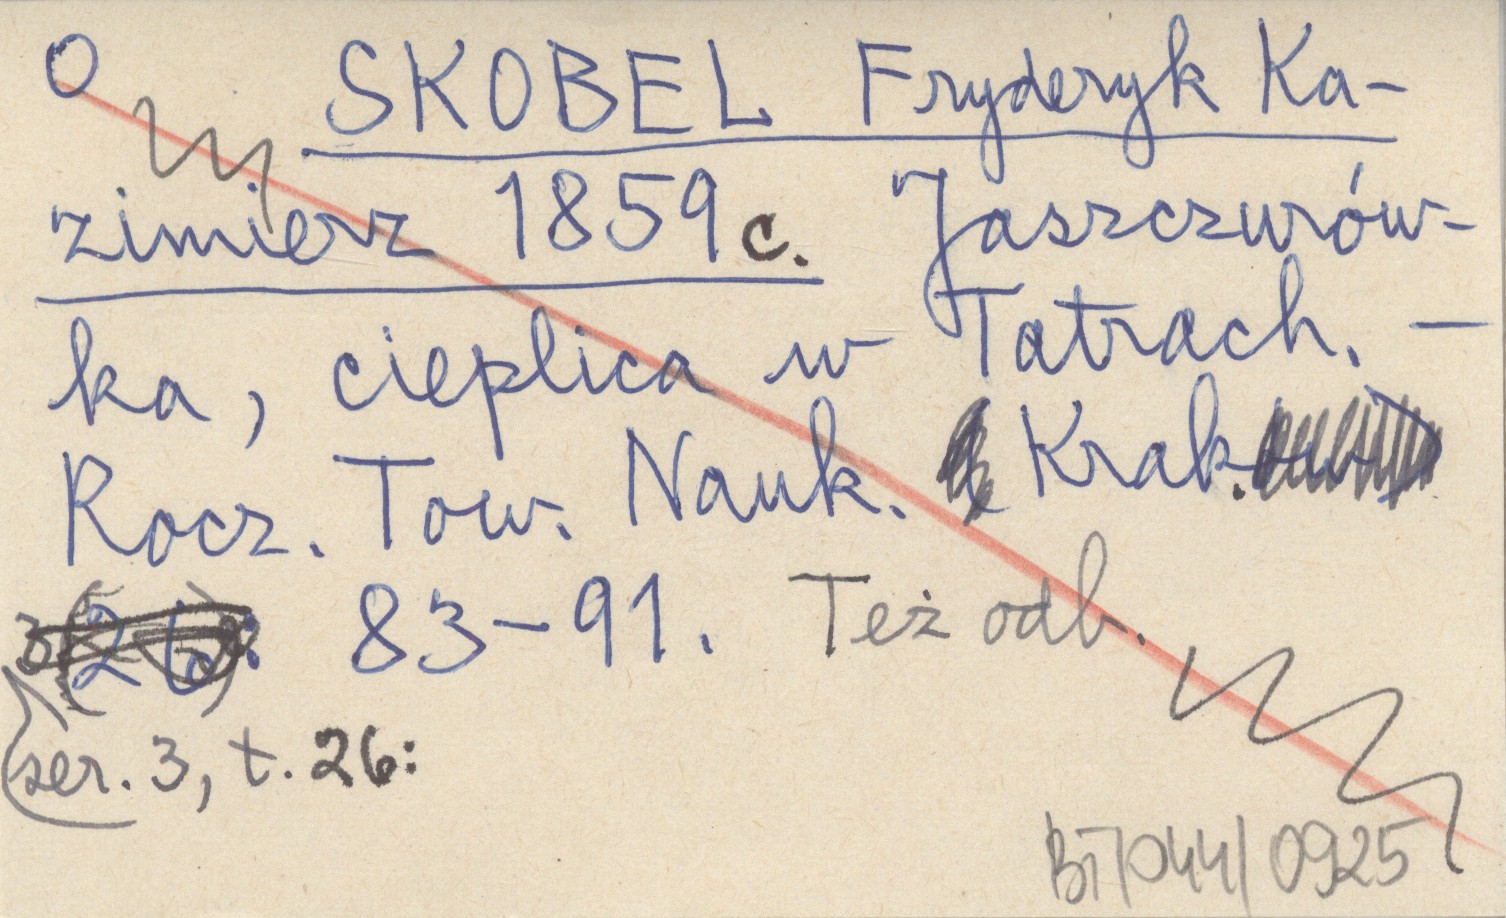 O SKOBEL Fryderyk Ka-
zimierz 1859c. Jaszczurów-
ka, cieplica w Tatrach. —
Rocz. Tow. Nauk. Krak.
83-91. Też odb.
ser. 3, t. 26:
BT/044/0925